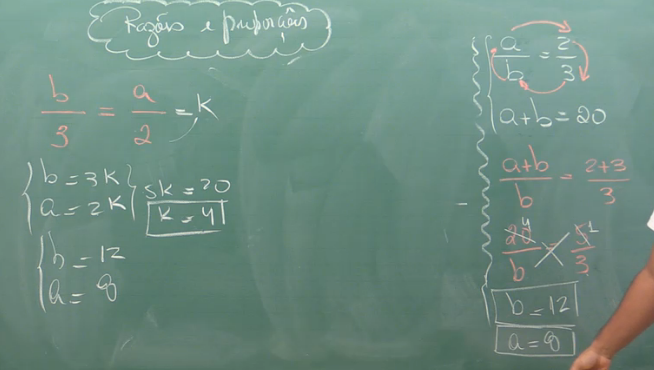 Razões e proporções
b/3 = a/2 = K
b = 3K
a = 2K
5K = 20
K = 4
b = 12
a = 8
a/b = 2/3
a+b = 20
a+b/b = 2+3/3
20 4/b = 5 1/3
b = 12
a = 8